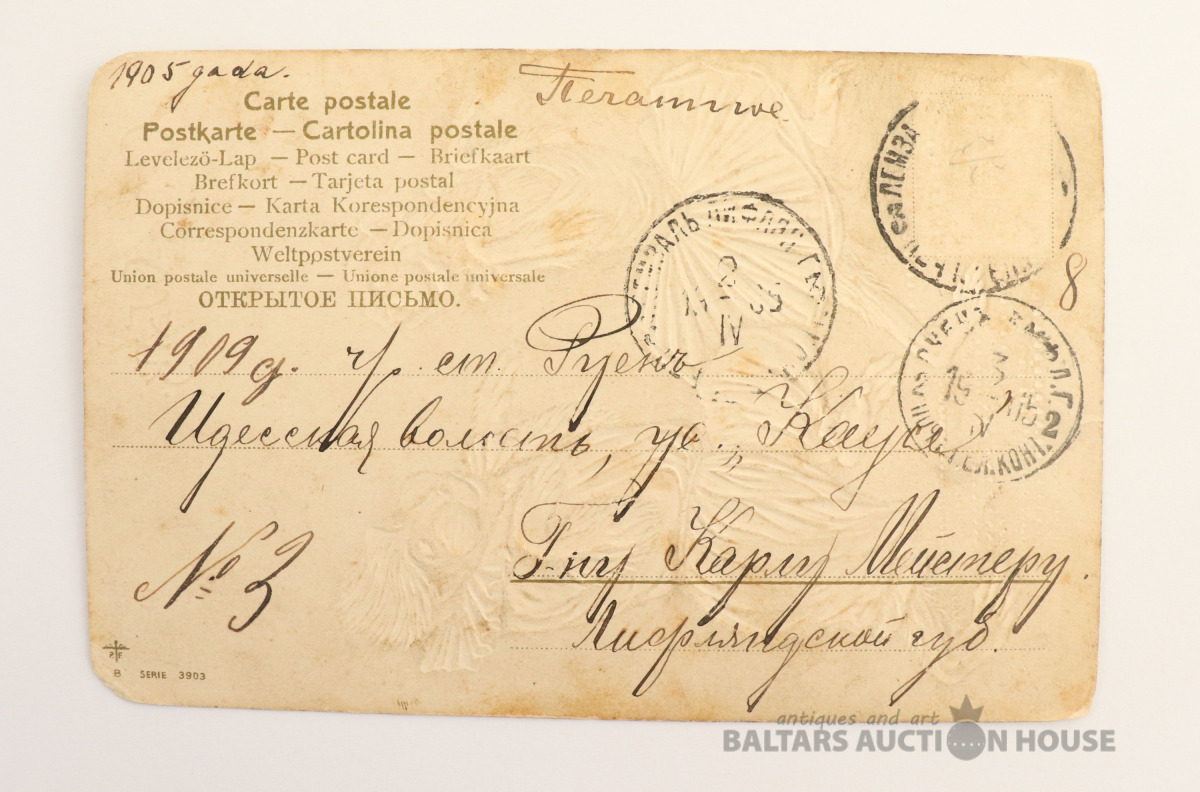 1905 gada.
Печатное.
Carte postale
Postkarte — Cartolina postale
Levelező-Lap — Post card — Briefkaart
Brefkort — Tarjeta postal
Dopisnice — Karta Korespondencyjna
Correspondenzkarte — Dopisnica
Weltpostverein
Union postale universelle — Unione postale universale
ОТКРЫТОЕ ПИСЬМО.
ЛЕМЗА
8
ЛИФЛЯН
2
IV
05
3
15
Г. 2
1909 г. ч/. ст. Руенъ
Идесская волость, ус.
№ 3
Г-ну Карлу Мейстеру.
Лифляндской губ.
B SERIE 3903
antiques and art
BALTARS AUCTION HOUSE